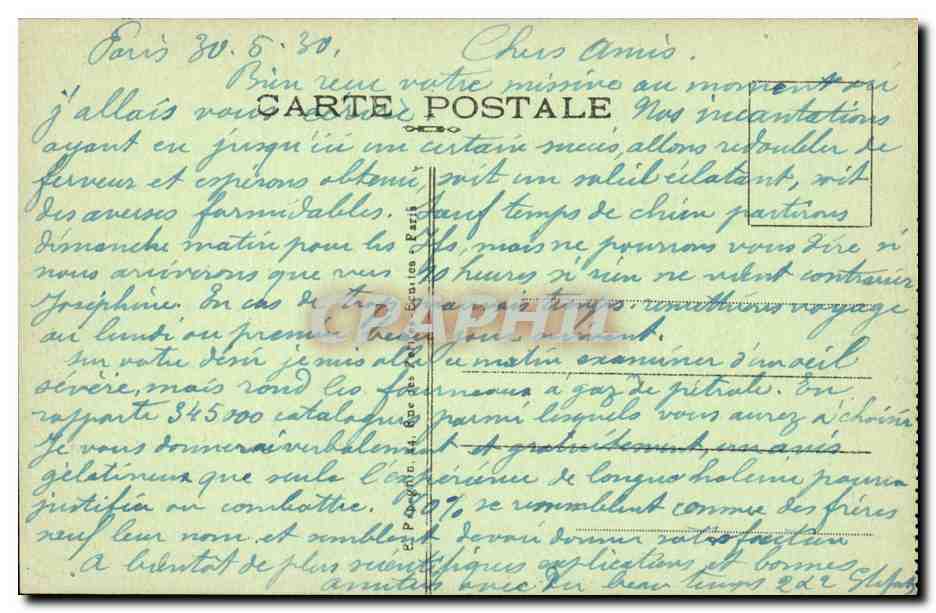 Paris 30.5.30. Chers amis.
Bien reçu votre missive au moment où
CARTE POSTALE
j'allais vous Nos incantations
ayant eu jusqu'ici un certain succès, allons redoubler de
ferveur et espérons obtenir, soit un soleil éclatant, soit
des averses formidables. Sauf temps de chien partirons
dimanche matin pour les Ifs, mais ne pouvons vous dire si
nous arriverons que vers heures, si rien ne vient contrarier
Joséphine. En cas de trop mauvais temps remettrions voyage
au lundi ou premier jour suivant.
Sur votre désir je suis allé ce matin examiner d'un œil
sévère, mais rond les fourneaux à gaz de pétrole. En
rapporte 345000 catalogues parmi lesquels vous aurez à choisir
Je vous donnerai verbalement et gratuitement, un avis
gélatineux que seule l'expérience de longue haleine pourra
justifier ou combattre. 90% se ressemblent comme des frères
sauf leur nom et semblent devoir donner satisfaction
A bientôt de plus scientifiques explications et bonnes
amitiés avec du beau temps 2 à 2
E. Papeghin, 44, Rue des Petites Ecuries - Paris
CPAPHIL